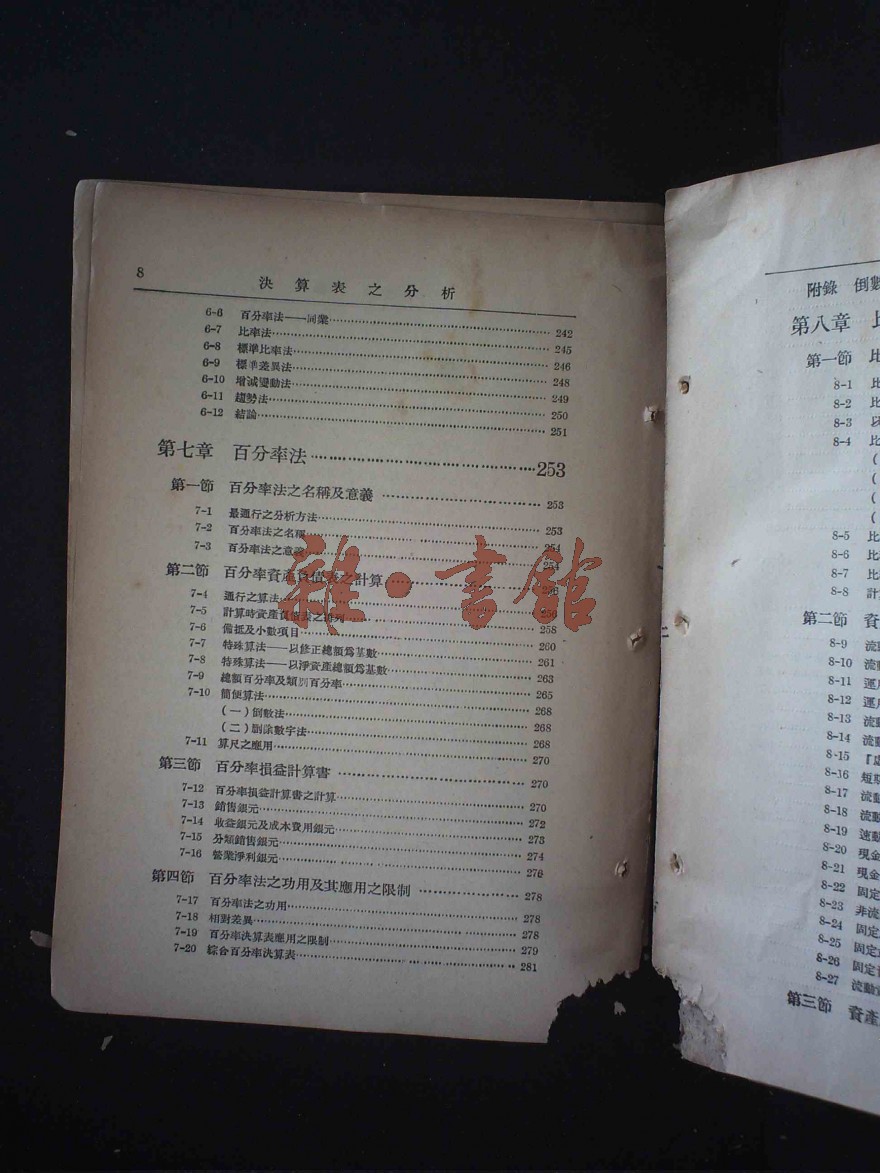 8
決算表之分析
6-6 百分率法——同業 242
6-7 比率法 245
6-8 標準比率法 246
6-9 標準差異法 248
6-10 增減變動法 249
6-11 趨勢法 250
6-12 結論 251
第七章 百分率法 253
第一節 百分率法之名稱及意義 253
7-1 最通行之分析方法 253
7-2 百分率法之名稱 254
7-3 百分率法之意義 254
第二節 百分率資產負債表之計算 256
7-4 通行之算法 256
7-5 計算時資產負債表之排列 258
7-6 備抵及小數項目 260
7-7 特殊算法——以修正總額為基數 261
7-8 特殊算法——以淨資產總額為基數 263
7-9 總額百分率及類別百分率 265
7-10 簡便算法 268
(一)倒數法 268
(二)刪除數字法 268
7-11 算尺之應用 270
第三節 百分率損益計算書 270
7-12 百分率損益計算書之計算 270
7-13 銷售銀元 272
7-14 收益銀元及成本費用銀元 273
7-15 分類銷售銀元 274
7-16 營業淨利銀元 276
第四節 百分率法之功用及其應用之限制 278
7-17 百分率法之功用 278
7-18 相對差異 278
7-19 百分率決算表應用之限制 279
7-20 綜合百分率決算表 281
雜·書館
附錄 倒數
第八章 比
第一節 比
8-1 比
8-2 比
8-3 以
8-4 比
(
(
(
(
8-5 比
8-6 比
8-7 比
8-8 計
第二節 資
8-9 流動
8-10 流動
8-11 運用
8-12 運用
8-13 流動
8-14 流動
8-15 『虛
8-16 短期
8-17 流動
8-18 流動
8-19 速動
8-20 現金
8-21 現金
8-22 固定
8-23 非流
8-24 固定
8-25 固定
8-26 固定
8-27 流動
第三節 資產